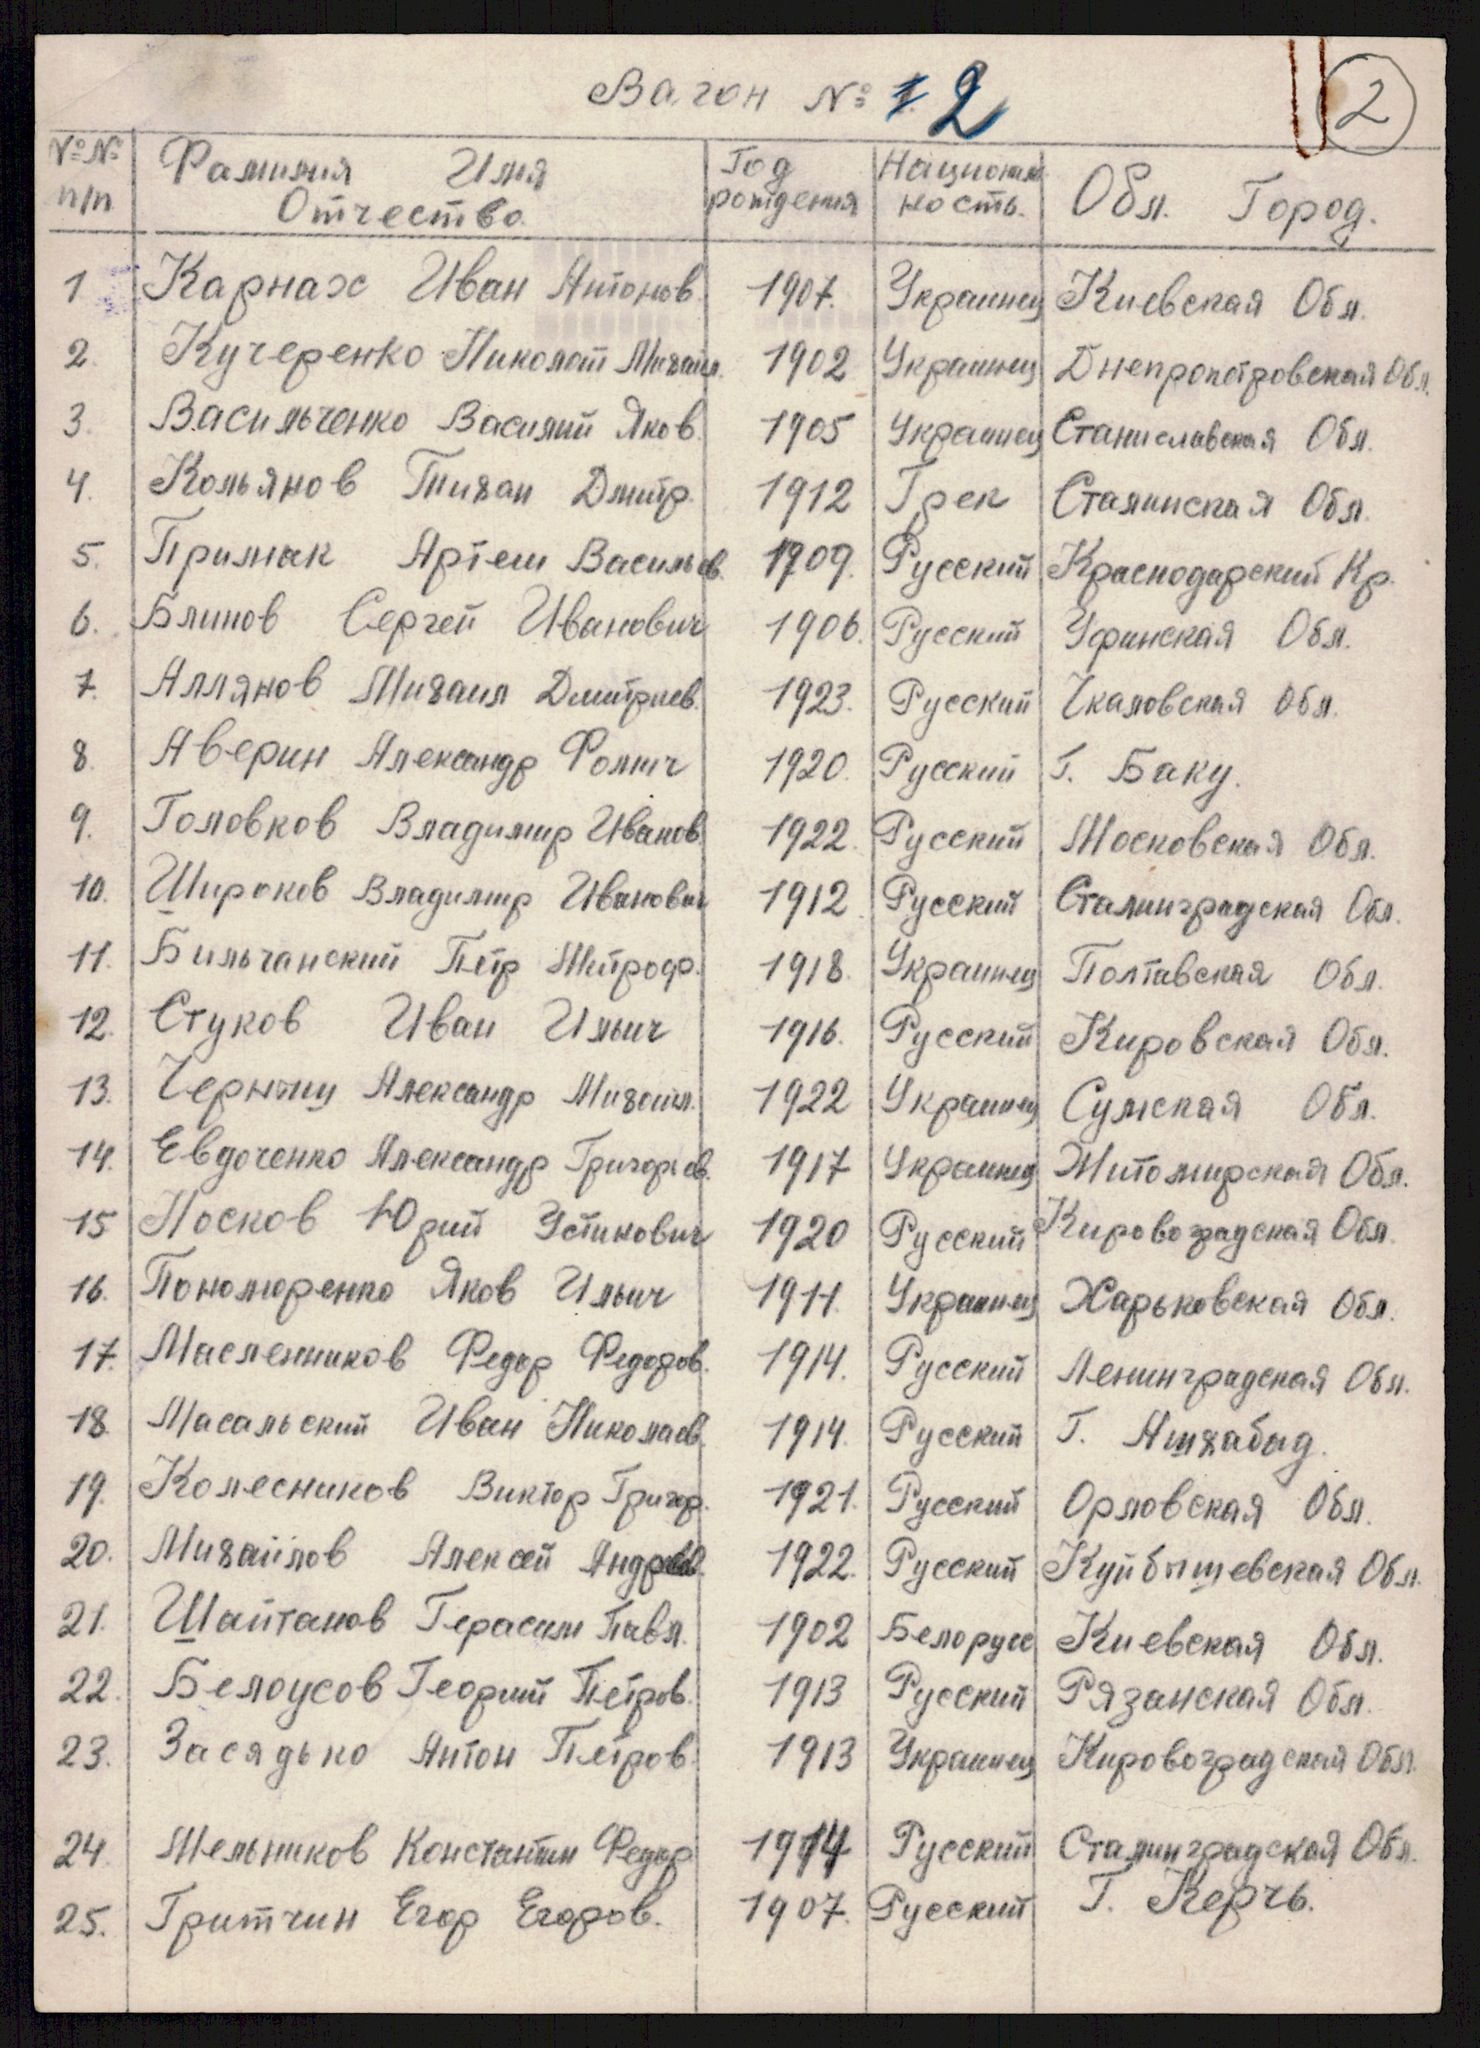 Вагон № 2
2
№ № Фамилия Имя Год Националь Обл. Город.
п/п Отчество рождения ность.
1 Карнах Иван Антонов. 1907. Украинец Киевская Обл.
2. Кучеренко Николай Михайл. 1902 Украинец Днепропетровская Обл.
3. Васильченко Василий Яков. 1905 Украинец Станиславская Обл.
4. Кольянов Дмитр. 1912 Грек Сталинская Обл.
5. Примак Артем Васильев. 1909. Русский Краснодарский Кр.
6. Блинов Сергей Иванович 1906. Русский Уфинская Обл.
7. Аллянов Михаил Дмитриев. 1923. Русский Чкаловская Обл.
8. Аверин Александр Фомич 1920. Русский Г. Баку.
9. Головков Владимир Иванов. 1922. Русский Московская Обл.
10. Широков Владимир Иванович 1912. Русский Сталинградская Обл.
11. Бильчанский Пётр Митроф. 1918. Украинец Полтавская Обл.
12. Стуков Иван Ильич 1916. Русский Кировская Обл.
13. Александр Михайл. 1922 Украинец Сумская Обл.
14. Евдоченко Александр Григорьев. 1917 Украинец Житомирская Обл.
15 Носков Юрий Устинович 1920 Русский Кировоградская Обл.
16. Пономоренко Яков Ильич 1911. Украинец Харьковская Обл.
17. Масленников Федор Федоров. 1914. Русский Ленинградская Обл.
18. Масальский Иван Николаев. 1914. Русский Г. Ашхабад.
19. Колесников Виктор Григор. 1921. Русский Орловская Обл.
20. Михайлов Алексей Андреев. 1922. Русский Куйбышевская Обл.
21. Шайтанов Герасим Павл. 1902 Белорусс Киевская Обл.
22. Белоусов Георгий Петров. 1913 Русский Рязанская Обл.
23. Засядько Антон Петров. 1913 Украинец Кировоградская Обл.
24. Мельников Константин Федор 1914 Русский Сталинградская Обл.
25. Гритчин Егор Егоров. 1907. Русский Г. Керчь.